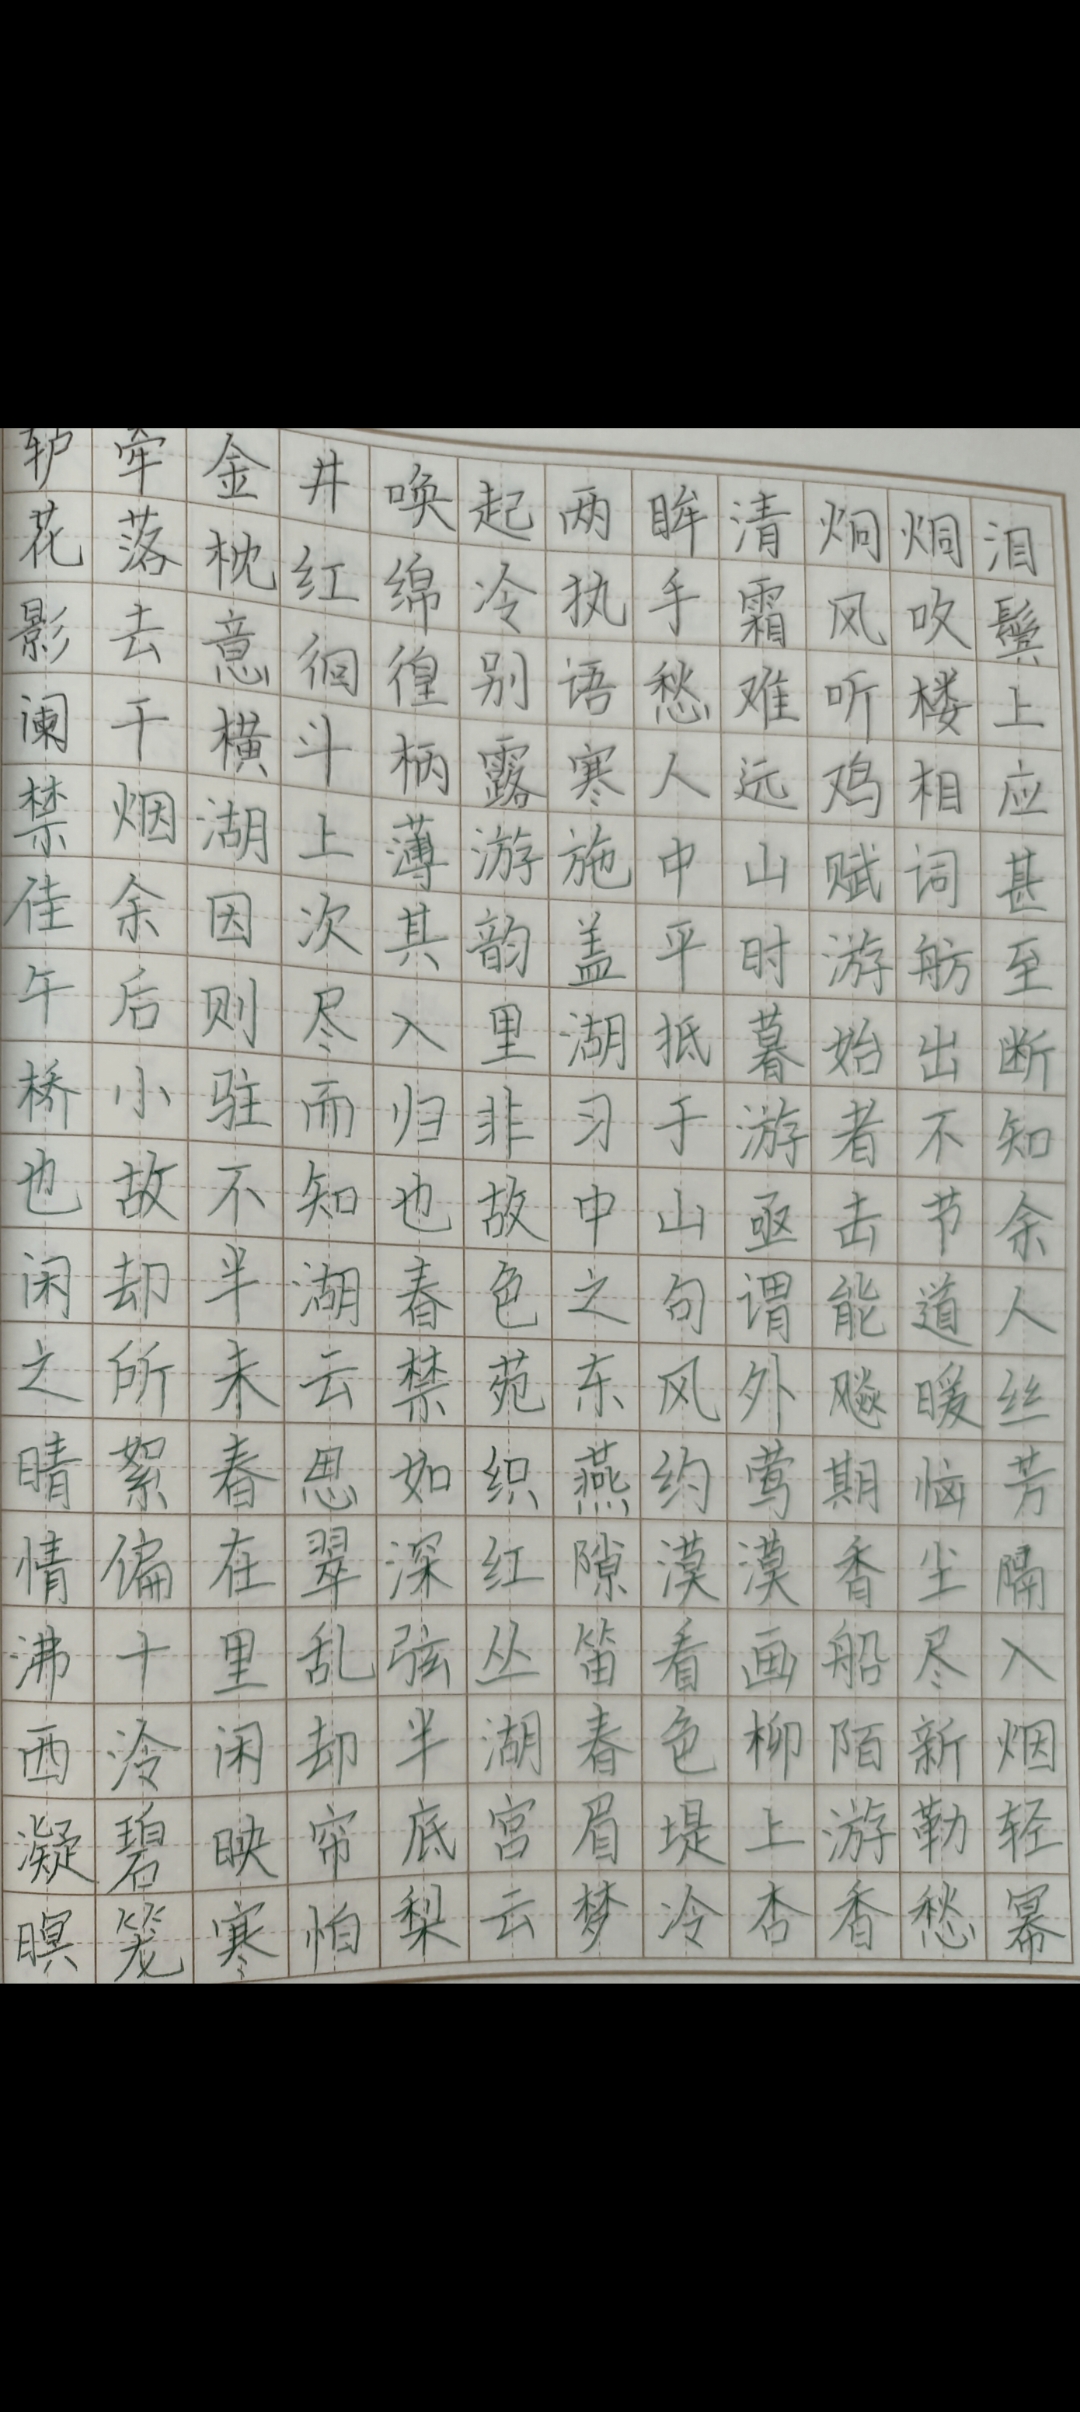 轳牵金井唤起两眸清炯炯泪
花落枕红绵冷执手霜风吹鬓
影去意徊徨别语愁难听楼上
阑干横斗柄露寒人远鸡相应
禁烟湖上薄游施中山赋词甚
佳余因次其韵盖平时游舫至
午后则尽入里湖抵暮始出断
桥小驻而归非习于游者不知
也故不知也故中山亟击节余
闲却半湖春色之句谓能道人
之所未云禁苑东风外飏暖丝
晴絮春思如织燕约莺期恼芳
情偏在翠深红隙漠漠香尘隔
沸十里乱弦丛笛看画船尽入
西泠闲却半湖春色柳陌新烟
凝碧映帘底宫眉堤上游勒轻
暝笼寒怕梨云梦冷杏香愁幂